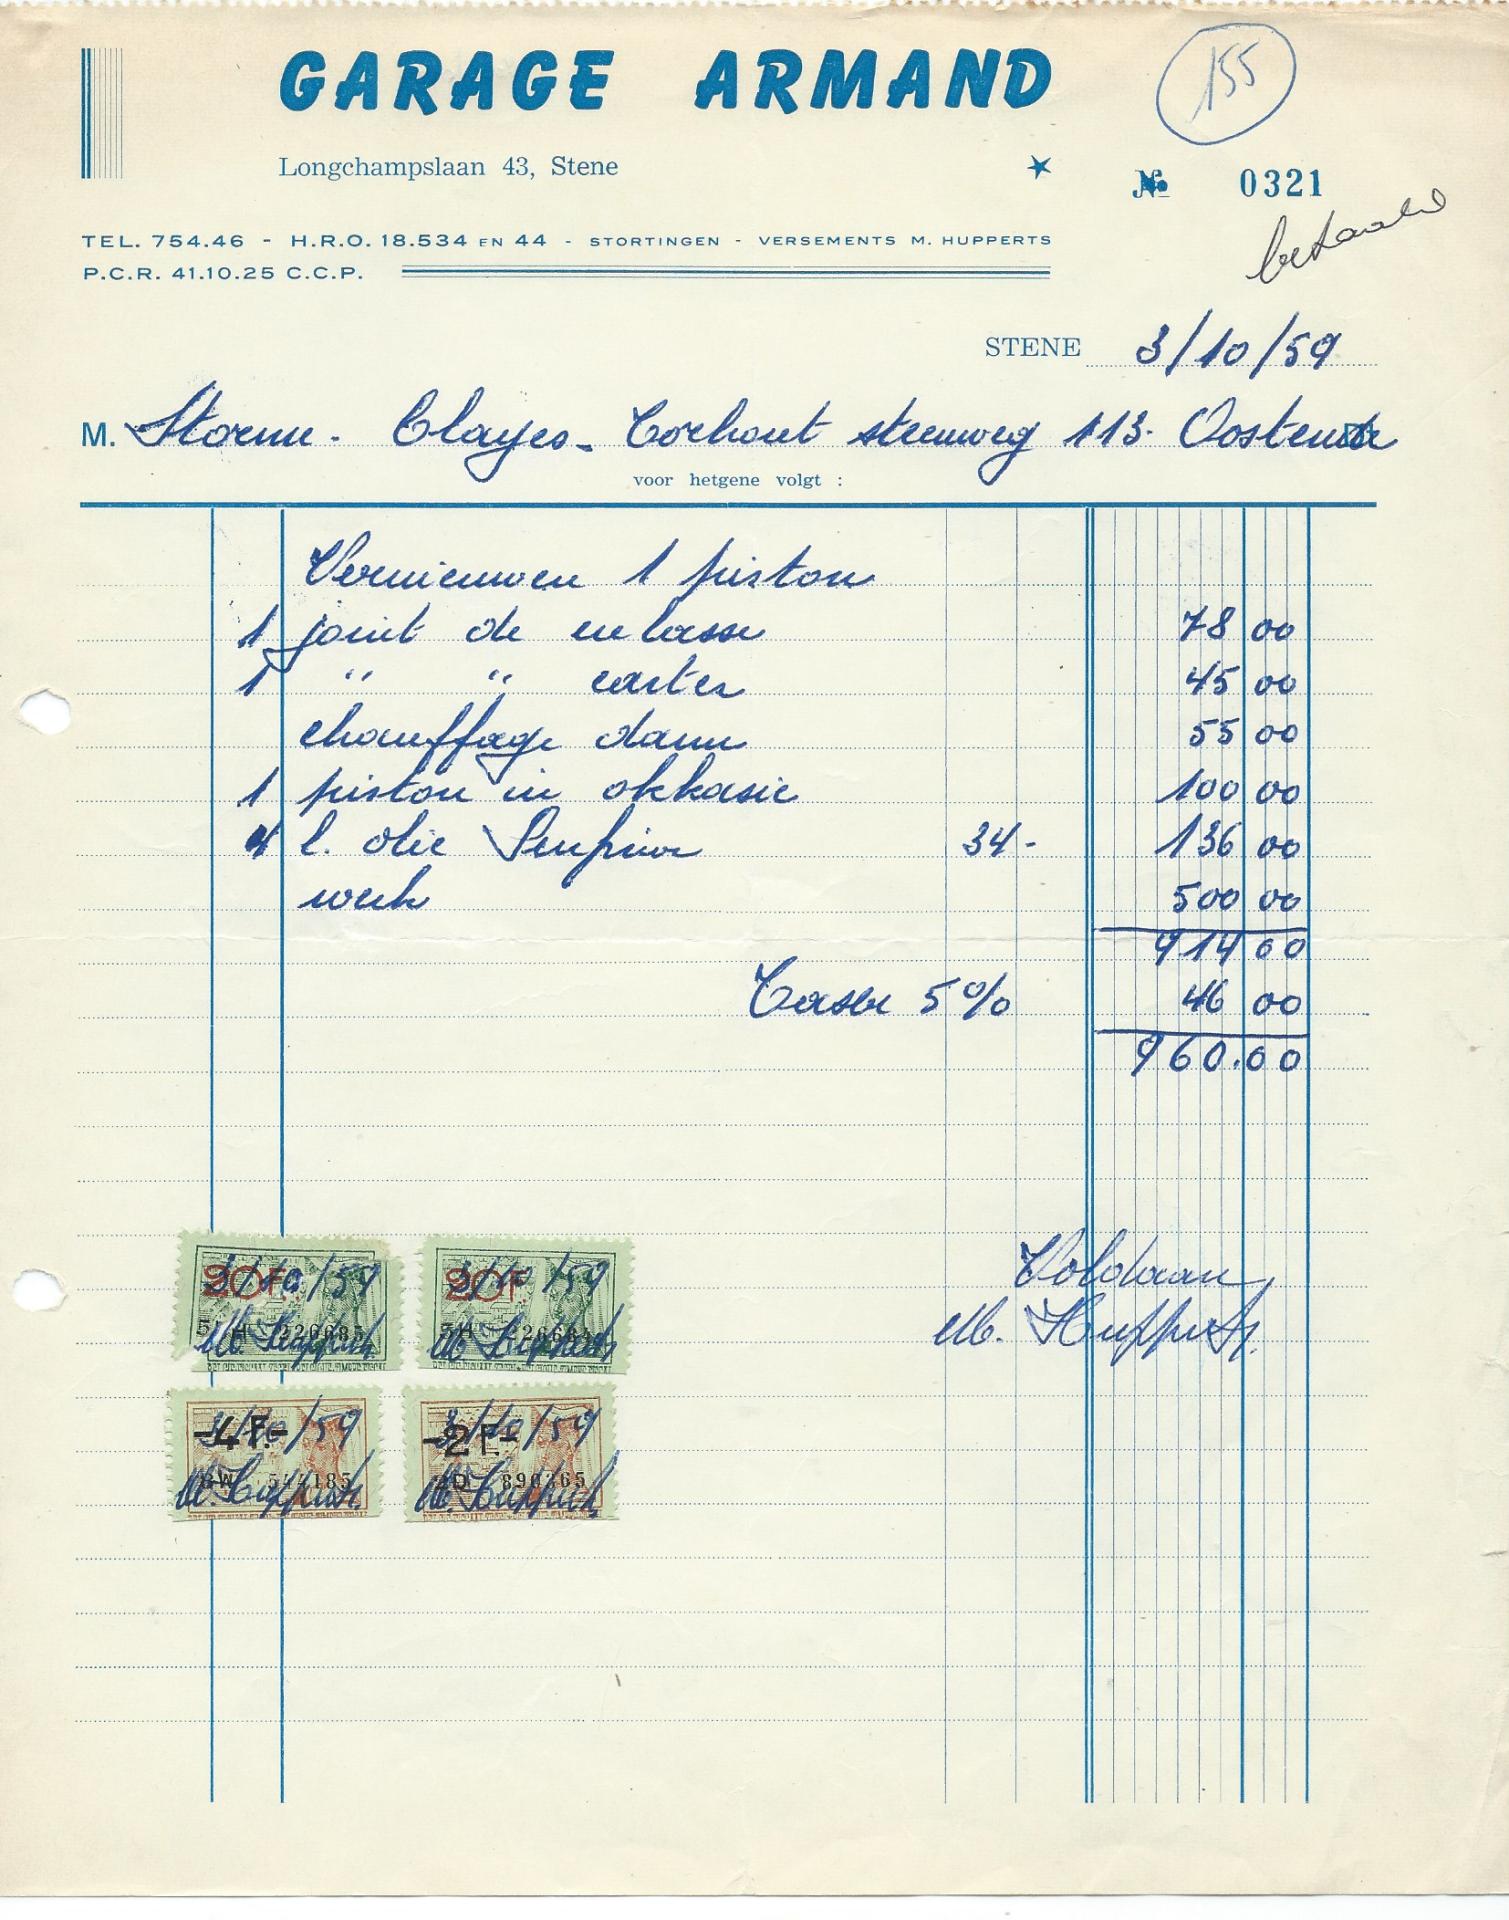 GARAGE ARMAND
155
Longchampslaan 43, Stene
№ 0321
betaald
TEL. 754.46 - H.R.O. 18.534 EN 44 - STORTINGEN - VERSEMENTS M. HUPPERTS
P.C.R. 41.10.25 C.C.P.
STENE 3/10/59
M. Storme - Clayes - Torhout steenweg 113. Oostende
voor hetgene volgt :
Vernieuwen 1 piston
1 joint de culasse 78 00
1 " " carter 45 00
chauffage damm 55 00
1 piston in okkasie 100 00
4 l. olie 34- 136 00
werk 500 00
914 00
Taxe 5% 46 00
960.00
Voldaan
M. Hupperts.
20F. 3/10/59
20F. 3/10/59
M. Hupperts
M. Hupperts
-4F.- 3/10/59
-2F.- 3/10/59
890365
M. Hupperts.
M. Hupperts